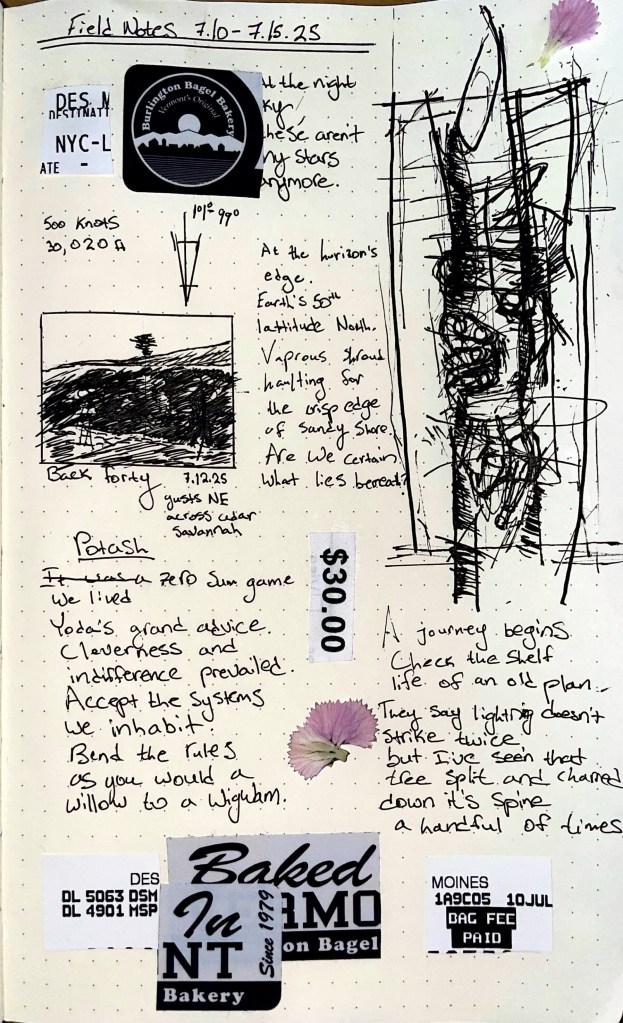 Field Notes 7.10 - 7.15.25
DES M
DESTINATI
NYC-L
ATE -
Burlington Bagel Bakery
Vermont's Original
At the night
ky,
these aren't
my stars
anymore.
500 Knots
30,020 ft
101° 990
At the horizon's
edge.
Earth's 50th
lattitude North.
Vaprous shroud
haulting for
the crisp edge
of Sandy Shore.
Are we certain
what lies beneath?
Back forty 7.12.25
gusts NE
across cedar
Savannah
Potash
It was a zero Sum game
we lived
Yoda's grand advice.
Cleverness and
indifference prevailed.
Accept the Systems
we inhabit.
Bend the rules
as you would a
willow to a Wigwam.
$30.00
A journey begins.
Check the shelf
life of an old plan...
They say lightnig doesn't
strike twice
but I've seen that
tree split and charred
down it's Spine
a handful of times
DES
DL 5063 DSM
DL 4901 MSP
Baked
In
RMO
NT
Since 1979
on Bagel
Bakery
MOINES
1A9C05 10JUL
BAG FEE
PAID